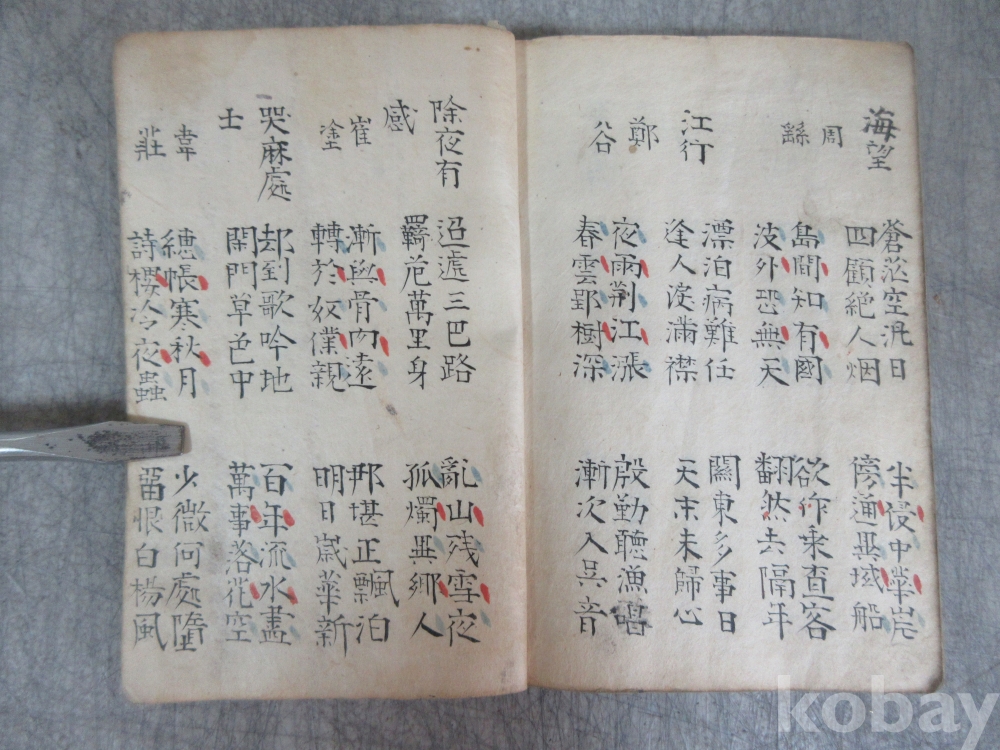 海望
周繇
蒼茫空汎日
四顧絶人烟
半侵中華岸
傍通異域船
島間知有國
波外恐無天
欲作乘査客
翻然去隔年
江行
鄭谷
漂泊病難任
逢人淚滿襟
關東多事日
天末未歸心
夜雨荊江漲
春雲郢樹深
殷勤聽漁唱
漸次入吳音
除夜有
感
崔塗
迢遞三巴路
羇危萬里身
亂山残雪夜
孤燭異鄉人
漸與骨肉遠
轉於奴僕親
那堪正飄泊
明日歲華新
哭麻處
壬
韋莊
却到歌吟地
閑門草色中
百年流水盡
萬事落花空
繐帳寒秋月
詩樓冷夜蟲
少微何處墮
留恨白楊風
kobay